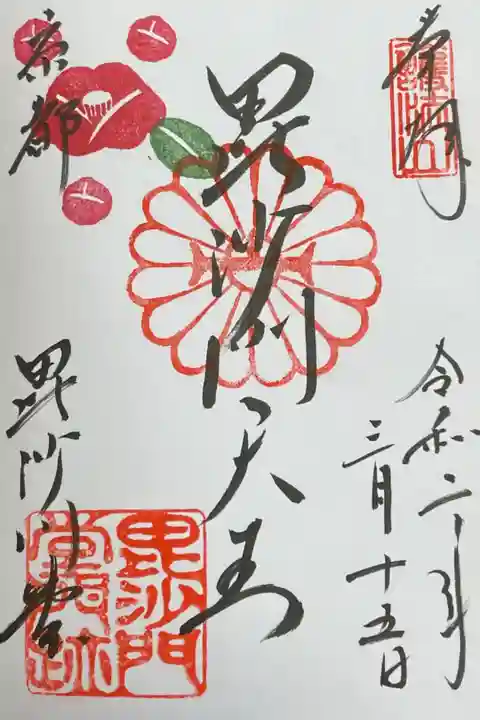 奉拝
令和二年
三月十五日
毘沙門天王
京都
毘沙門堂
毘沙門
堂門跡